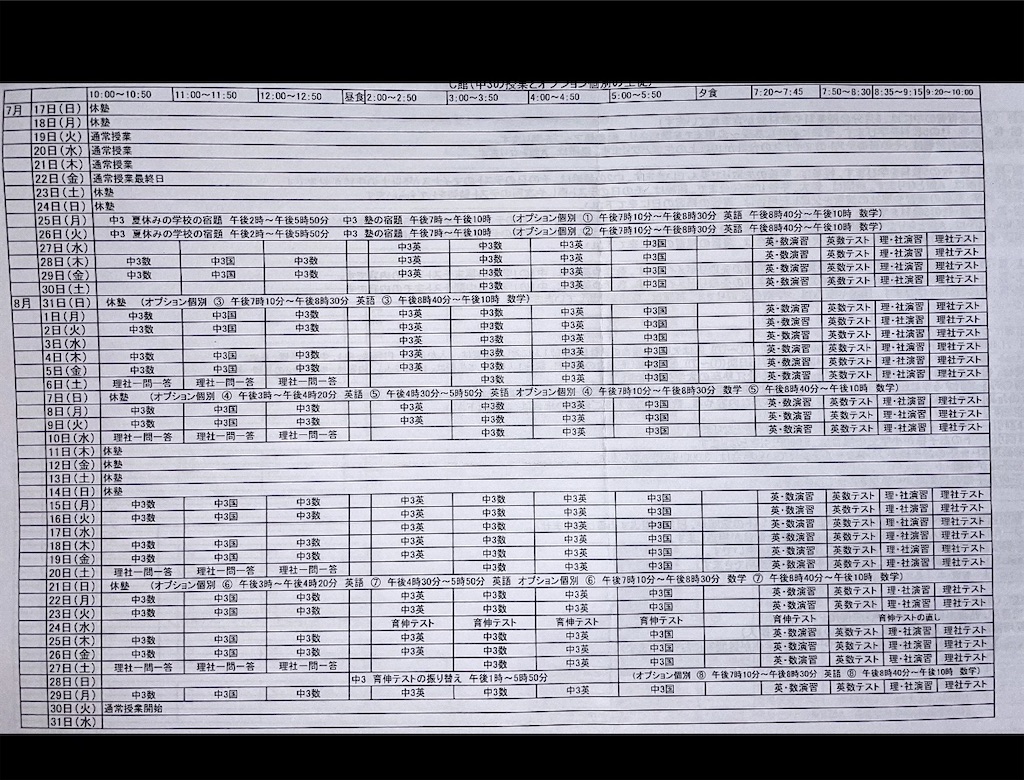 C館(中3の授業とオプション個別の生徒)
10:00~10:50 11:00~11:50 12:00~12:50 昼食 2:00~2:50 3:00~3:50 4:00~4:50 5:00~5:50 夕食 7:20~7:45 7:50~8:30 8:35~9:15 9:20~10:00
7月 17日(日) 休塾
18日(月) 休塾
19日(火) 通常授業
20日(水) 通常授業
21日(木) 通常授業
22日(金) 通常授業最終日
23日(土) 休塾
24日(日) 休塾
25日(月) 中3 夏休みの学校の宿題 午後2時~午後5時50分 中3 塾の宿題 午後7時~午後10時 (オプション個別 ① 午後7時10分~午後8時30分 英語 午後8時40分~午後10時 数学)
26日(火) 中3 夏休みの学校の宿題 午後2時~午後5時50分 中3 塾の宿題 午後7時~午後10時 (オプション個別 ② 午後7時10分~午後8時30分 英語 午後8時40分~午後10時 数学)
27日(水) 中3英 中3数 中3英 中3国 英・数演習 英数テスト 理・社演習 理社テスト
28日(木) 中3数 中3国 中3数 中3英 中3数 中3英 中3国 英・数演習 英数テスト 理・社演習 理社テスト
29日(金) 中3数 中3国 中3数 中3英 中3数 中3英 中3国 英・数演習 英数テスト 理・社演習 理社テスト
30日(土) 中3数 中3英 中3国 英・数演習 英数テスト 理・社演習 理社テスト
8月 31日(日) 休塾 (オプション個別 ③ 午後7時10分~午後8時30分 英語 ③ 午後8時40分~午後10時 数学)
1日(月) 中3数 中3国 中3数 中3英 中3数 中3英 中3国 英・数演習 英数テスト 理・社演習 理社テスト
2日(火) 中3数 中3国 中3数 中3英 中3数 中3英 中3国 英・数演習 英数テスト 理・社演習 理社テスト
3日(水) 中3英 中3数 中3英 中3国 英・数演習 英数テスト 理・社演習 理社テスト
4日(木) 中3数 中3国 中3数 中3英 中3数 中3英 中3国 英・数演習 英数テスト 理・社演習 理社テスト
5日(金) 中3数 中3国 中3数 中3英 中3数 中3英 中3国 英・数演習 英数テスト 理・社演習 理社テスト
6日(土) 理社一問一答 理社一問一答 理社一問一答 中3数 中3英 中3国 英・数演習 英数テスト 理・社演習 理社テスト
7日(日) 休塾 (オプション個別 ④ 午後3時~午後4時20分 英語 ⑤ 午後4時30分~5時50分 英語 オプション個別 ④ 午後7時10分~午後8時30分 数学 ⑤ 午後8時40分~午後10時 数学)
8日(月) 中3数 中3国 中3数 中3英 中3数 中3英 中3国 英・数演習 英数テスト 理・社演習 理社テスト
9日(火) 中3数 中3国 中3数 中3英 中3数 中3英 中3国 英・数演習 英数テスト 理・社演習 理社テスト
10日(水) 理社一問一答 理社一問一答 理社一問一答 中3数 中3英 中3国 英・数演習 英数テスト 理・社演習 理社テスト
11日(木) 休塾
12日(金) 休塾
13日(土) 休塾
14日(日) 休塾
15日(月) 中3数 中3国 中3数 中3英 中3数 中3英 中3国 英・数演習 英数テスト 理・社演習 理社テスト
16日(火) 中3数 中3国 中3数 中3英 中3数 中3英 中3国 英・数演習 英数テスト 理・社演習 理社テスト
17日(水) 中3英 中3数 中3英 中3国 英・数演習 英数テスト 理・社演習 理社テスト
18日(木) 中3数 中3国 中3数 中3英 中3数 中3英 中3国 英・数演習 英数テスト 理・社演習 理社テスト
19日(金) 中3数 中3国 中3数 中3英 中3数 中3英 中3国 英・数演習 英数テスト 理・社演習 理社テスト
20日(土) 理社一問一答 理社一問一答 理社一問一答 中3数 中3英 中3国 英・数演習 英数テスト 理・社演習 理社テスト
21日(日) 休塾 (オプション個別 ⑥ 午後3時~午後4時20分 英語 ⑦ 午後4時30分~5時50分 英語 オプション個別 ⑥ 午後7時10分~午後8時30分 数学 ⑦ 午後8時40分~午後10時 数学)
22日(月) 中3数 中3国 中3数 中3英 中3数 中3英 中3国 英・数演習 英数テスト 理・社演習 理社テスト
23日(火) 中3数 中3国 中3数 中3英 中3数 中3英 中3国 英・数演習 英数テスト 理・社演習 理社テスト
24日(水) 育伸テスト 育伸テスト 育伸テスト 育伸テスト 育伸テスト 育伸テストの直し
25日(木) 中3数 中3国 中3数 中3英 中3数 中3英 中3国 英・数演習 英数テスト 理・社演習 理社テスト
26日(金) 中3数 中3国 中3数 中3英 中3数 中3英 中3国 英・数演習 英数テスト 理・社演習 理社テスト
27日(土) 理社一問一答 理社一問一答 理社一問一答 中3数 中3英 中3国 英・数演習 英数テスト 理・社演習 理社テスト
28日(日) 中3 育伸テストの振り替え 午後1時~5時50分 (オプション個別 ⑧ 午後7時10分~午後8時30分 英語 ⑧ 午後8時40分~午後10時 数学)
29日(月) 中3数 中3国 中3数 中3英 中3数 中3英 中3国 英・数演習 英数テスト 理・社演習 理社テスト
30日(火) 通常授業開始
31日(水)